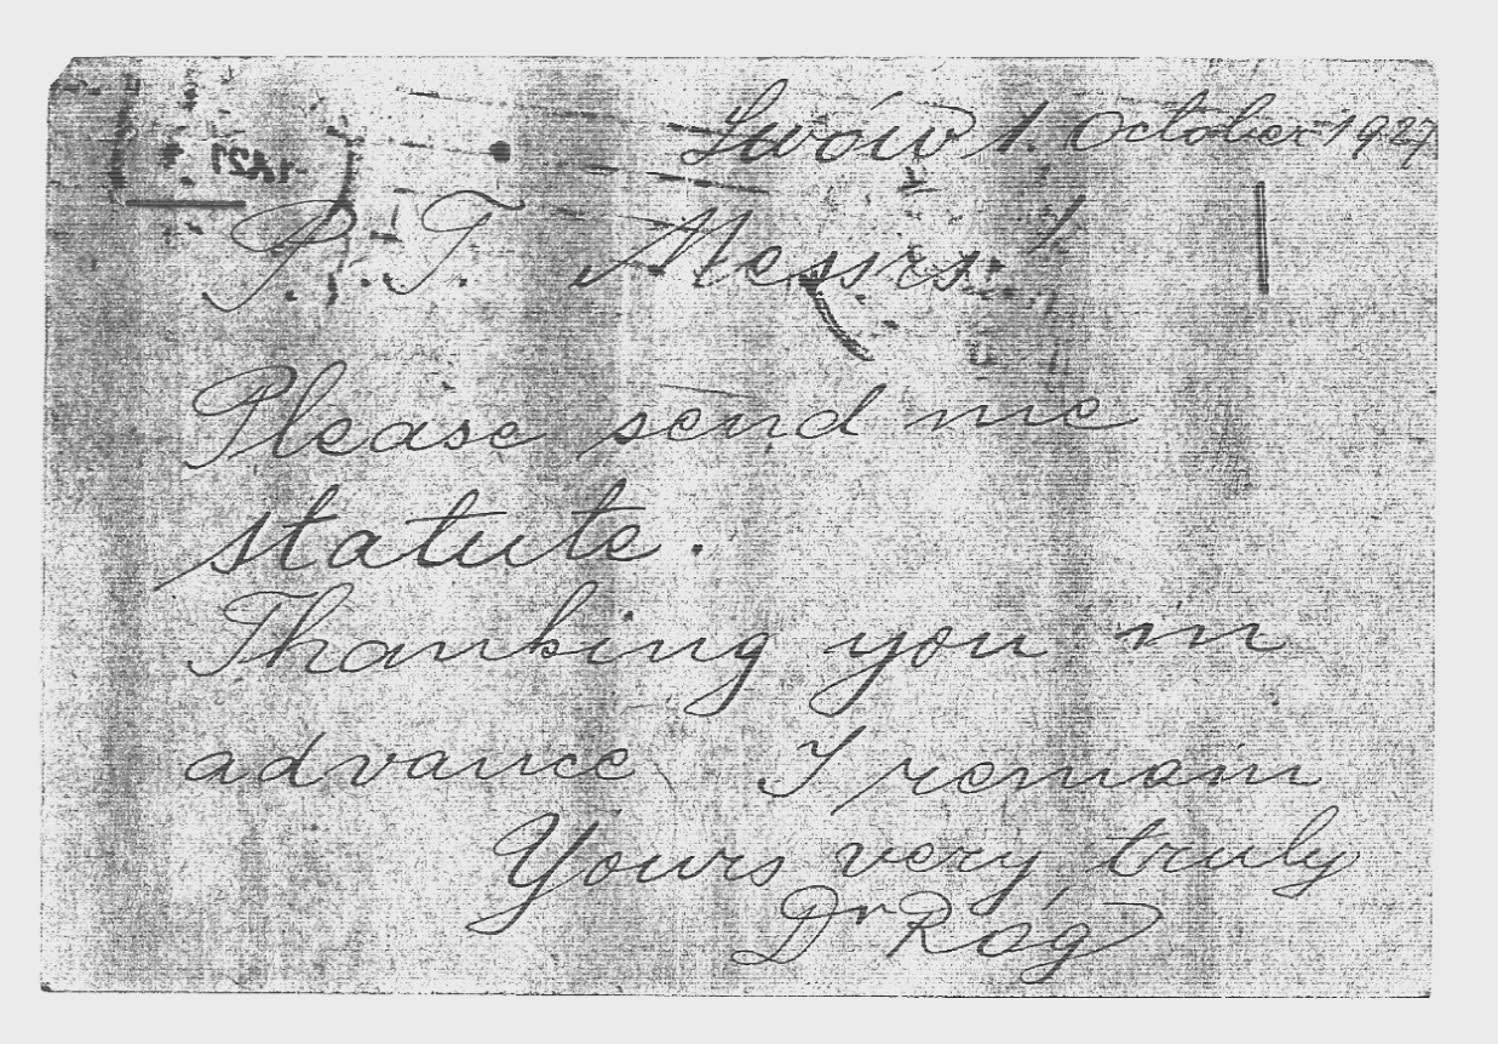 Lwów 1. October 1927
P. T. Messrs!
Please send me
statute.
Thanking you in
advance I remain
Yours very truly
Dr Róg